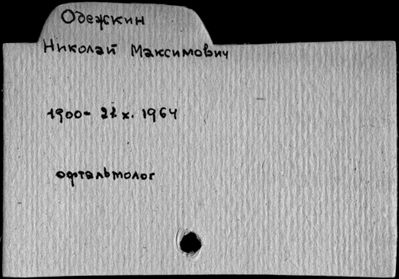 Одежкин
Николай Максимович
1900- 21 x. 1964
офтальмолог